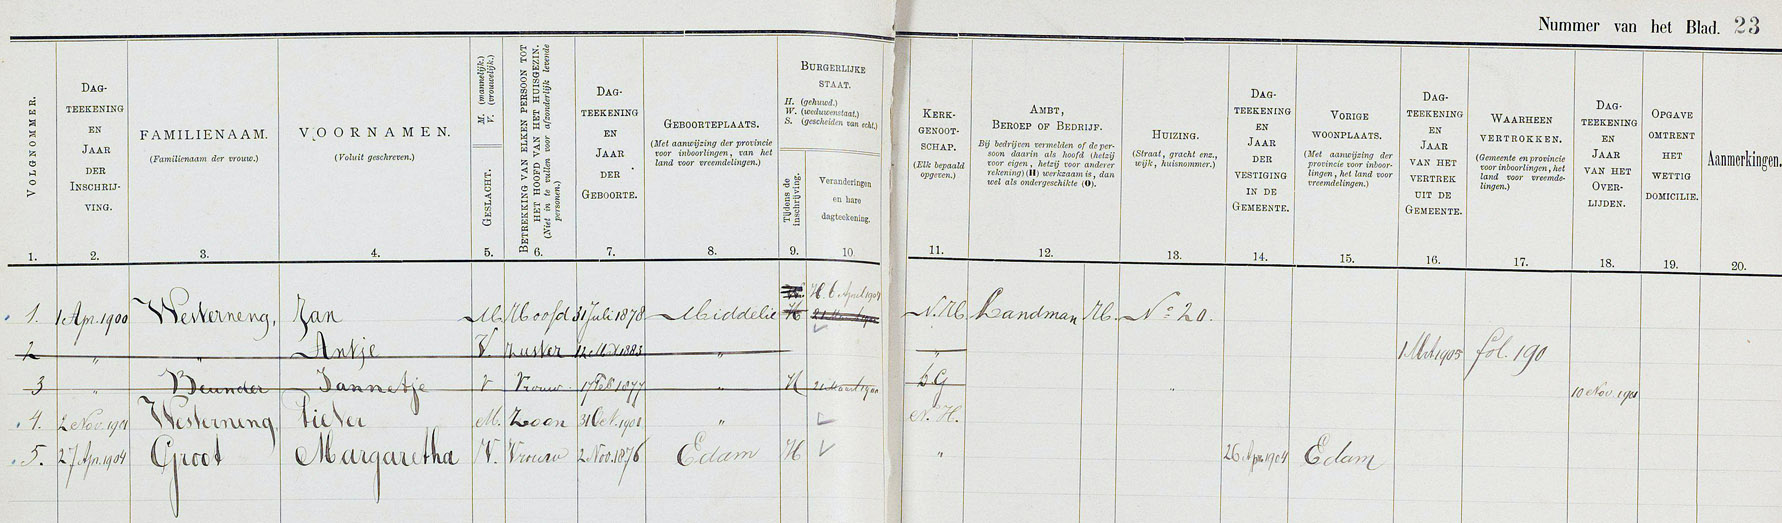 Nummer van het Blad. 23
VOLGNOMMER.
DAG-
TEEKENING
EN
JAAR
DER
INSCHRIJ-
VING.
FAMILIENAAM.
(Familienaam der vrouw.)
VOORNAMEN.
(Voluit geschreven.)
GESLACHT. M. (mannelijk.)
V. (vrouwelijk.)
BETREKKING VAN ELKEN PERSOON TOT
HET HOOFD VAN HET HUISGEZIN.
(Niet in te vullen voor afzonderlijk levende
personen.)
DAG-
TEEKENING
EN
JAAR
DER
GEBOORTE.
GEBOORTEPLAATS.
(Met aanwijzing der provincie
voor inboorlingen, van het
land voor vreemdelingen.)
BURGERLIJKE
STAAT.
H. (gehuwd.)
W. (weduwenstaat.)
S. (gescheiden van echt.)
Tijdens de
inschrijving.
Veranderingen
en hare
dagteekening.
KERK-
GENOOT-
SCHAP.
(Elk bepaald
opgeven.)
AMBT,
BEROEP OF BEDRIJF.
Bij bedrijven vermelden of de per-
soon daarin als hoofd (hetzij
voor eigen, hetzij voor anderer
rekening) (H) werkzaam is, dan
wel als ondergeschikte (O).
HUIZING.
(Straat, gracht enz.,
wijk, huisnommer.)
DAG-
TEEKENING
EN
JAAR
DER
VESTIGING
IN DE
GEMEENTE.
VORIGE
WOONPLAATS.
(Met aanwijzing der
provincie voor inboor-
lingen, het land voor
vreemdelingen.)
DAG-
TEEKENING
EN
JAAR
VAN HET
VERTREK
UIT DE
GEMEENTE.
WAARHEEN
VERTROKKEN.
(Gemeente en provincie
voor inboorlingen, het
land voor vreemde-
lingen.)
DAG-
TEEKENING
EN
JAAR
VAN HET
OVER-
LIJDEN.
OPGAVE
OMTRENT
HET
WETTIG
DOMICILIE.
Aanmerkingen.
1. 2. 3. 4. 5. 6. 7. 8. 9. 10 11. 12. 13. 14. 15. 16. 17. 18. 19. 20.
H. 6 April 1904
1. 1 Apr. 1900 Westerneng, Jan M. Hoofd 31 Juli 1878 Middelie H N.H. Landman H. No 20.
2 " " Antje V. Zuster " " 1905 fol. 190
3 " Beunder Jannetje V Vrouw 17 Feb 1877 " H 21 Maart 1900 D.G " 10 Nov. 1901
4. 2 Nov. 1901 Westerneng, Pieter M. Zoon 31 Oct. 1901 " N.H.
5. 27 Apr. 1904 Groot Margaretha V. Vrouw 2 Nov. 1876 Edam H " 26 Apr. 1904 Edam